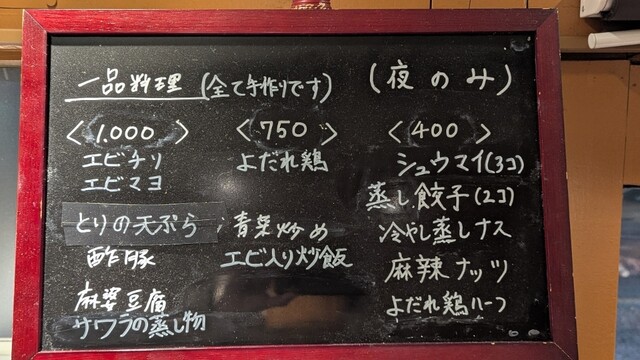 一品料理 (全て手作りです) (夜のみ)
<1.000>
エビチリ
エビマヨ
とりの天ぷら
酢豚
麻婆豆腐
サワラの蒸し物
<750>
よだれ鶏
青菜炒め
エビ入り炒飯
<400>
シュウマイ(3コ)
蒸し餃子(2コ)
冷やし蒸しナス
麻辣ナッツ
よだれ鶏ハーフ